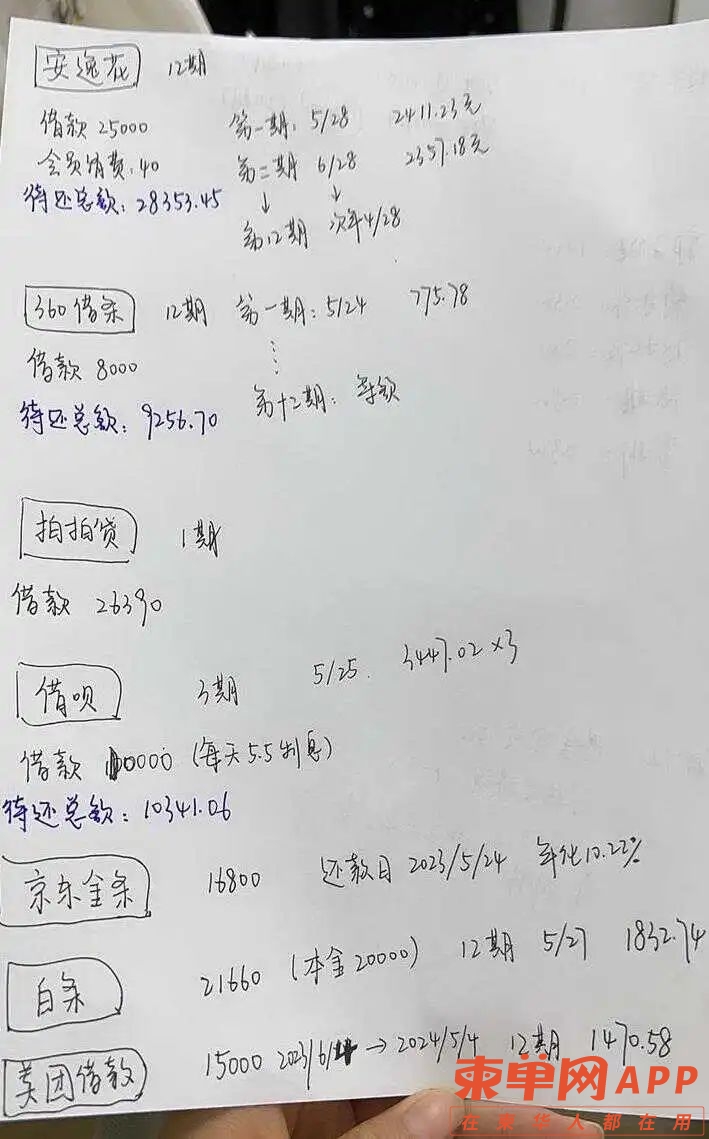 安逸花 12期
借款 25000 第一期: 5/28 2411.23元
会员消费: 40 第二期 6/28 2357.18元
待还总款: 28353.45 ↓ ↓
第12期 次年4/28
360借条 12期 第一期: 5/24 775.78
借款 8000
待还总款: 9256.70 第十二期: 等额
拍拍贷 1期
借款 26390
借呗 3期 5/25. 3447.02×3
借款 10000 (每天5.5利息)
待还总款: 10341.06
京东金条 16800 还款日 2023/5/24 年化10.22%
白条 21660 (本金20000) 12期 5/27 1832.74
美团借款 15000 2023/6/4 → 2024/5/4 12期 1470.58
柬单网APP
在柬华人都在用